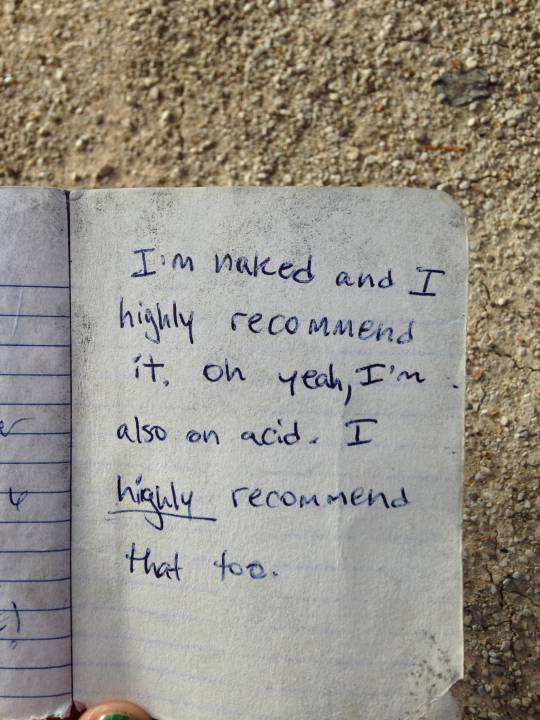 I'm naked and I
highly recommend
it. oh yeah, I'm
also on acid. I
highly recommend
that too.